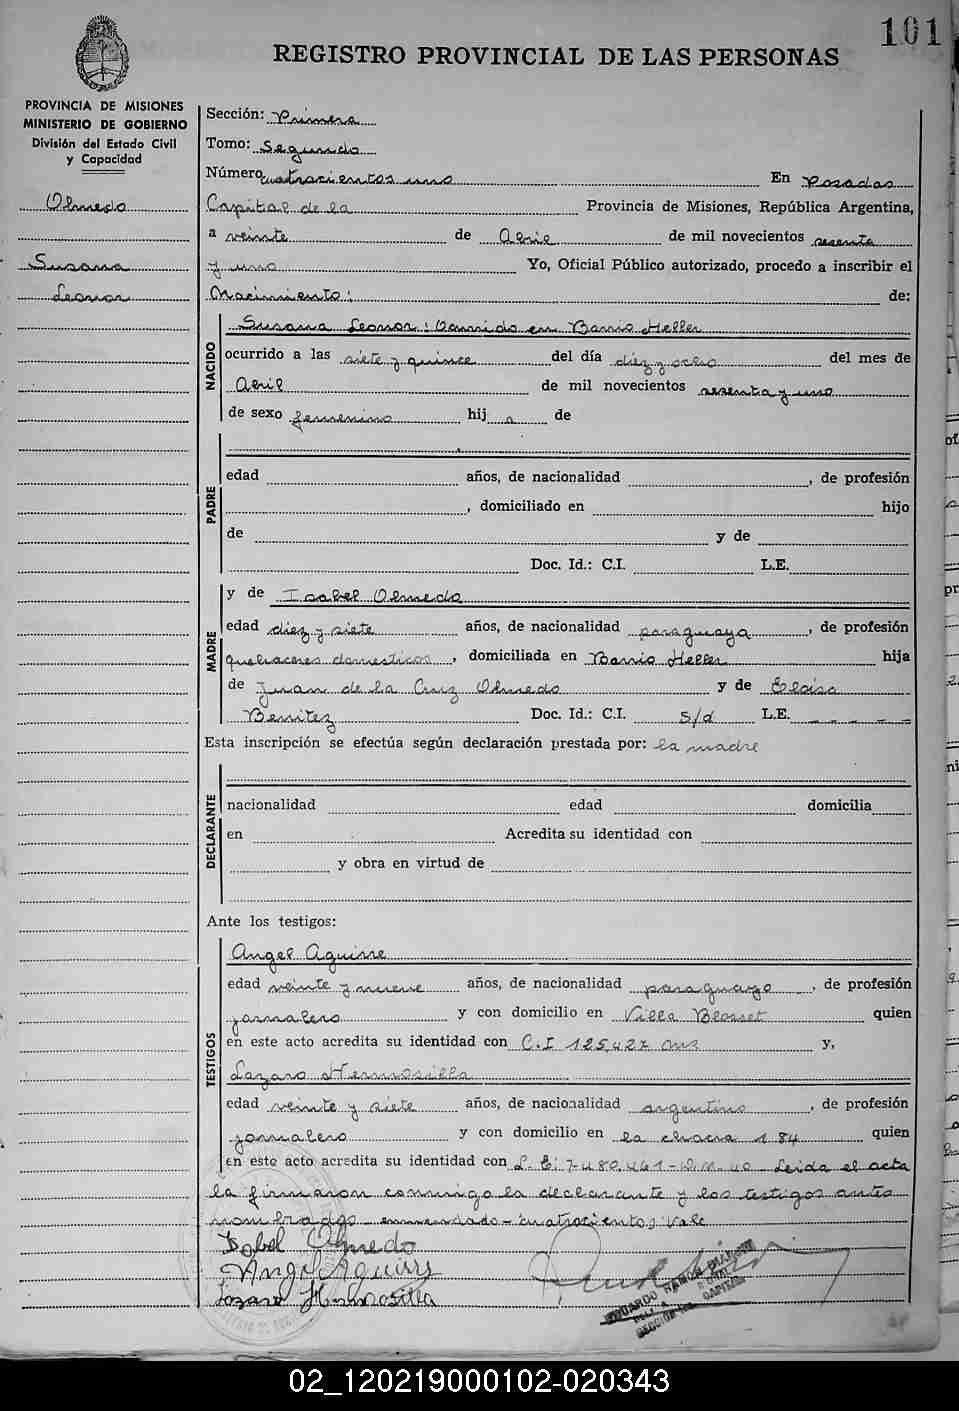 101
REGISTRO PROVINCIAL DE LAS PERSONAS
PROVINCIA DE MISIONES
MINISTERIO DE GOBIERNO
División del Estado Civil
y Capacidad
Olmedo
Susana
Leonor
Sección: Primera
Tomo: Segundo
Número cuatrocientos uno En Posadas
Capital de la Provincia de Misiones, República Argentina,
a veinte de Abril de mil novecientos sesenta
y uno Yo, Oficial Público autorizado, procedo a inscribir el
Nacimiento: de:
NACIDO
Susana Leonor: Ocurrido en Barrio Heller
ocurrido a las siete y quince del día diez y ocho del mes de
Abril de mil novecientos sesenta y uno
de sexo femenino hij a de
PADRE
edad años, de nacionalidad , de profesión
, domiciliado en hijo
de y de
Doc. Id.: C.I. L.E.
MADRE
y de Isabel Olmedo
edad diez y siete años, de nacionalidad paraguaya , de profesión
quehaceres domesticos , domiciliada en Barrio Heller hija
de Juan de la Cruz Olmedo y de Eloisa
Benitez Doc. Id.: C.I. S/d L.E. _ _ _ _ _
Esta inscripción se efectúa según declaración prestada por: la madre
DECLARANTE
nacionalidad edad domicilia
en Acredita su identidad con
y obra en virtud de
Ante los testigos:
TESTIGOS
Angel Aguirre
edad veinte y nueve años, de nacionalidad paraguayo , de profesión
jornalero y con domicilio en Villa Blosset quien
en este acto acredita su identidad con C.I 125427 y,
Lazaro Hermosilla
edad veinte y siete años, de nacionalidad argentino , de profesión
jornalero y con domicilio en la chacra 184 quien
en este acto acredita su identidad con L.E: 7.480.461-D.M. 40- Leida el acta
la firmaron conmigo la declarante y los testigos antes
nombrados- enmendado- cuatrocientos: Vale
Isabel Olmedo
Angel Aguirre
Lozaro Hermosilla
EDUARDO RAMON
02_120219000102-020343